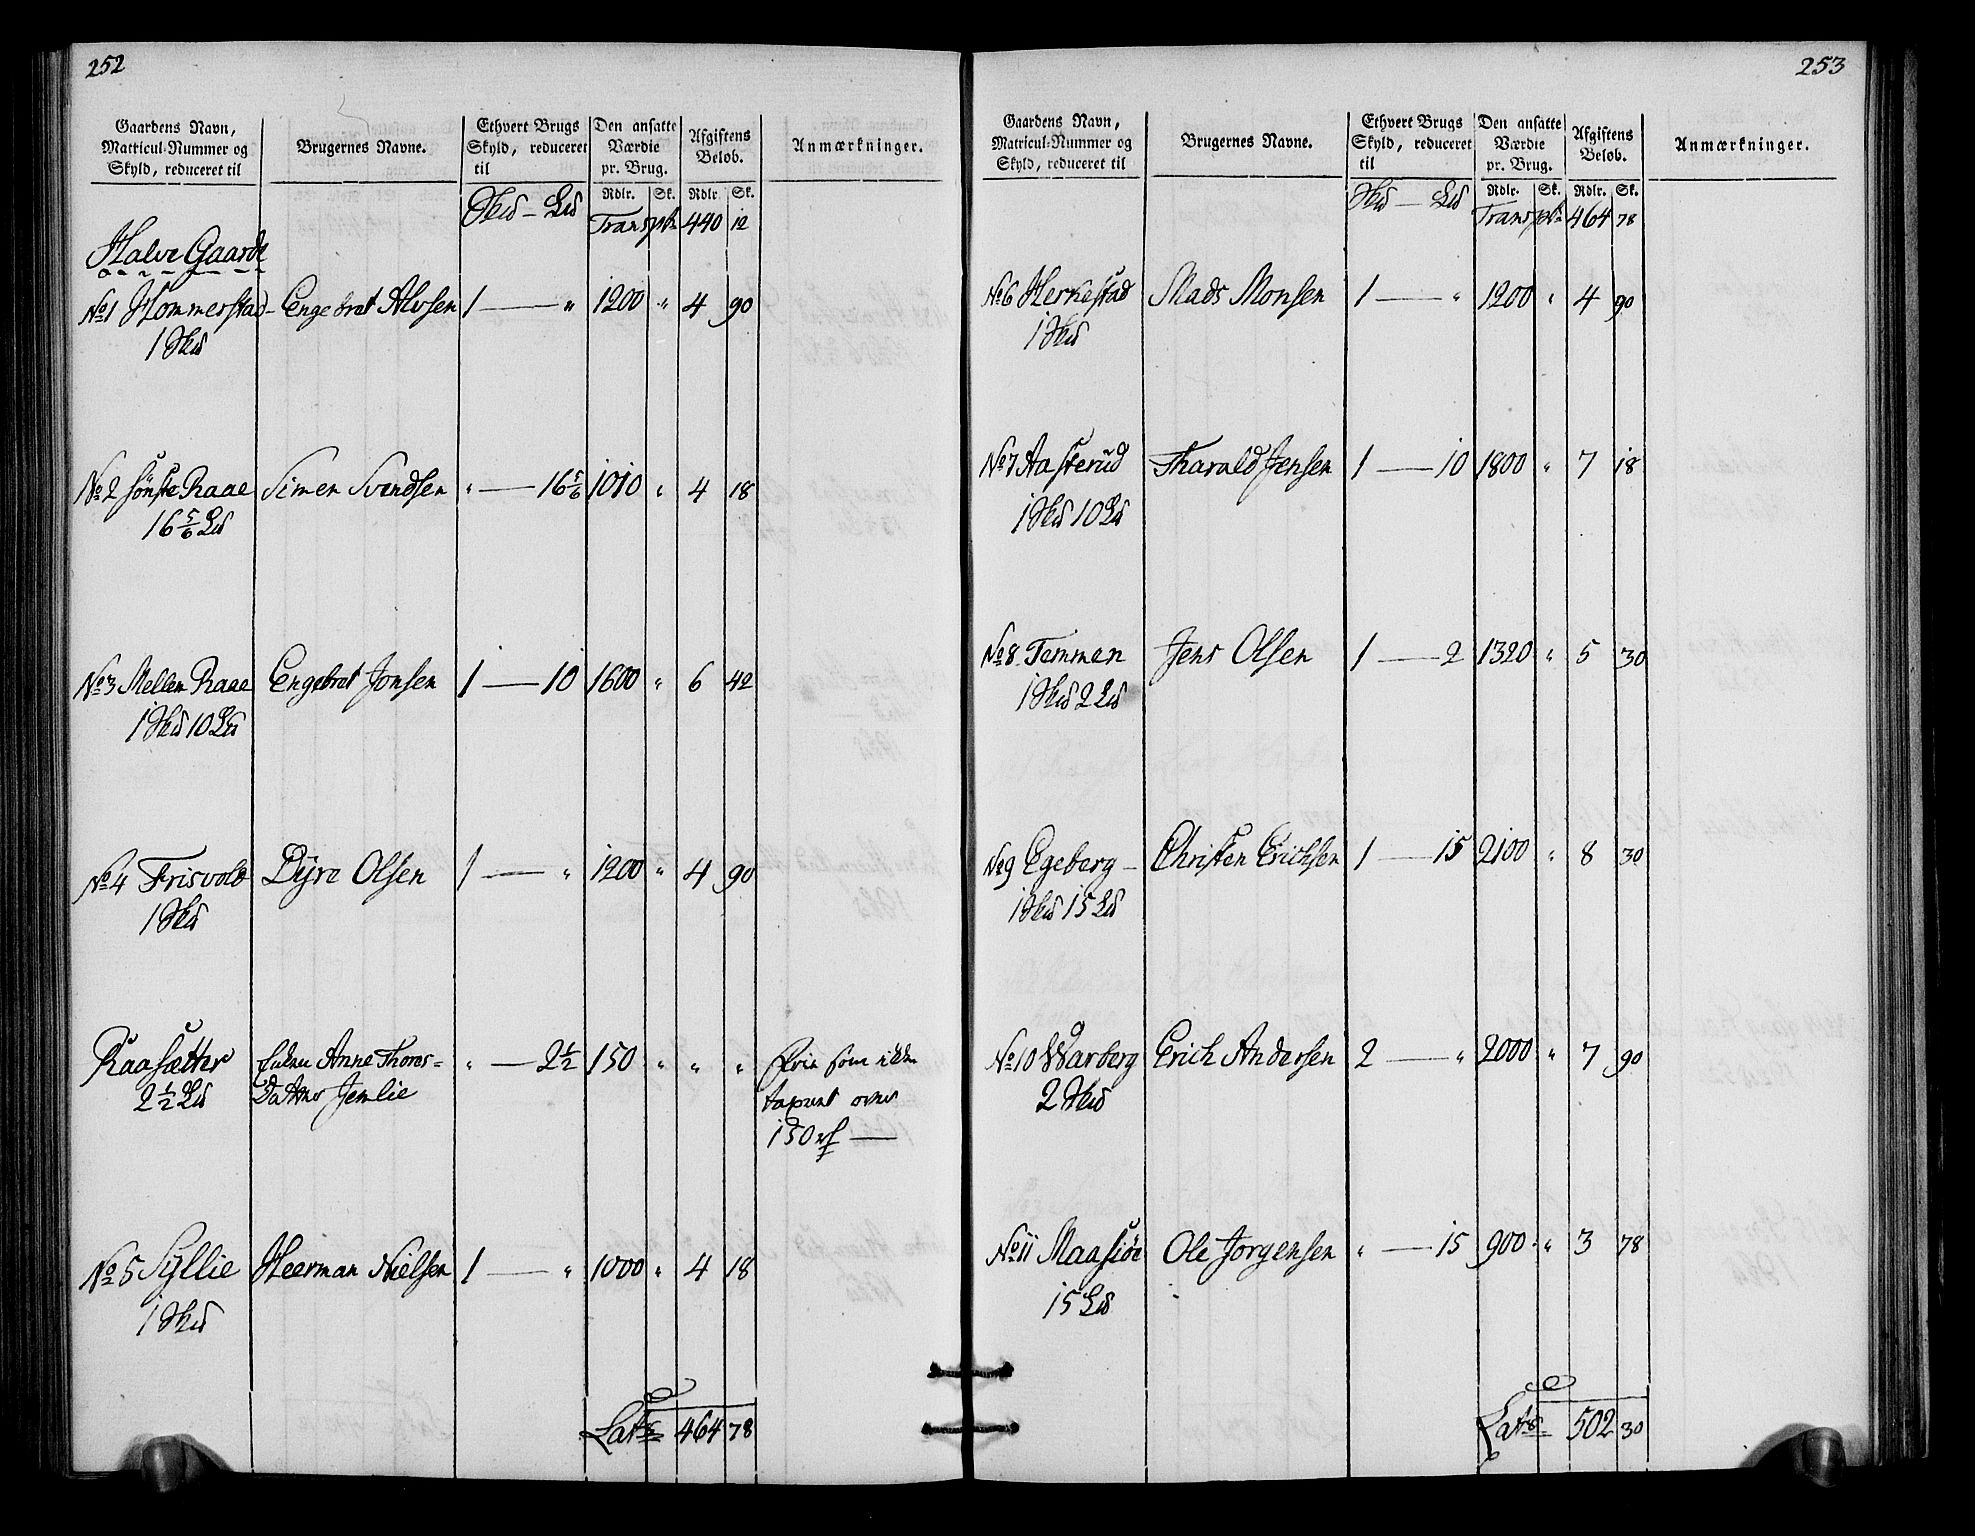 252
Gaardens Navn, Matricul-Nummer og Skyld, reduceret til
Brugernes Navne.
Ethvert Brugs Skyld, reduceret til
Den ansatte Værdie pr. Brug.
Afgiftens Beløb.
Anmærkninger.
Rdlr. Sk. Rdlr. Sk.
Skd — Ld Transpt 440 12
Halve Gaarde
No 1 Hommerstad Engebret Alvsen 1 — „ 1200 „ 4 90
1 Skd
No 2 Sønste Raae Simen Svendsen „ — 16 5/6 1010 „ 4 18
16 5/6 Ld
No 3 Mellem Raae Engebret Jonsen 1 — 10 1600 „ 6 42
1 Skd 10 Ld
No 4 Frisvold Dyre Olsen 1 — „ 1200 „ 4 90
1 Skd
Raasætter Enken Anne Thores= „ — 2 1/2 150 „ „ „ Frie som ikke
2 1/2 Ld Datter Jemlie taxeret over
150 rd —
No 5 Syllie Heerman Nielsen 1 — „ 1000 „ 4 18
1 Skd
Lats 464 78
253
Gaardens Navn, Matricul-Nummer og Skyld, reduceret til
Brugernes Navne.
Ethvert Brugs Skyld, reduceret til
Den ansatte Værdie pr. Brug.
Afgiftens Beløb.
Anmærkninger.
Rdlr. Sk. Rdlr. Sk.
Skd — Ld Transpt 464 78
No 6 Herkestad Mads Monsen 1 — „ 1200 „ 4 90
1 Skd
No 7 Aasterud Tharald Jensen 1 — 10 1800 „ 7 18
1 Skd 10 Ld
No 8 Temmen Jens Olsen 1 — 2 1320 „ 5 30
1 Skd 2 Ld
No 9 Egeberg — Christen Erichsen 1 — 15 2100 „ 8 30
1 Skd 15 Ld
No 10 Warberg Erich Andersen 2 — „ 2000 „ 7 90
2 Skd
No 11 Maasiøe Ole Jorgensen „ — 15 900 „ 3 78
15 Ld
Lats 502 30